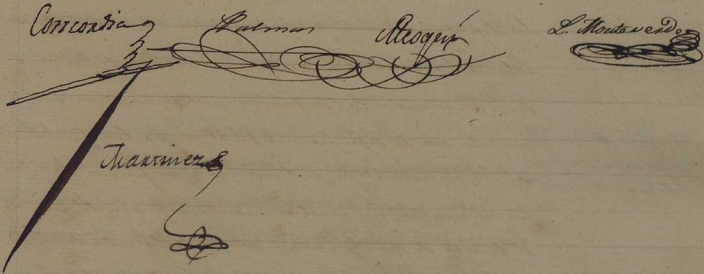 Concordia Palmas Aleogui L. Monteverde
Martinez